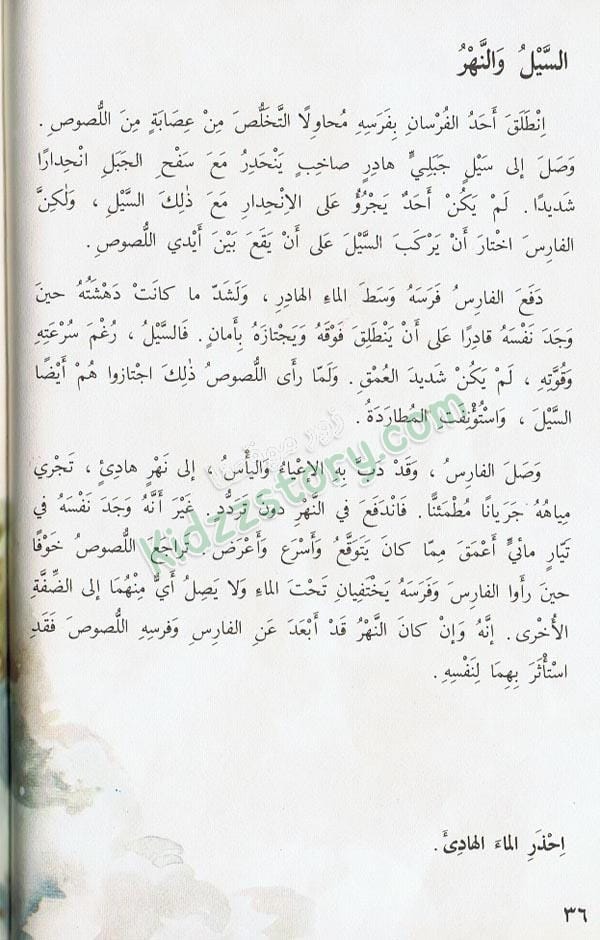 السَّيْلُ وَالنَّهْرُ
اِنْطَلَقَ أَحَدُ الفُرْسانِ بِفَرَسِهِ مُحاوِلًا التَّخَلُّصَ مِنْ عِصَابَةٍ مِنَ اللُّصوصِ .
وَصَلَ إلى سَيْلٍ جَبَلِيٍّ هادِرٍ صاخِبٍ يَنْحَدِرُ مَعَ سَفْحِ الجَبَلِ انْحِدارًا
شَديدًا . لَمْ يَكُنْ أَحَدٌ يَجْرُؤُ عَلى الاِنْحِدارِ مَعَ ذٰلِكَ السَّيْلِ ، وَلٰكِنَّ
الفارِسَ اخْتارَ أَنْ يَرْكَبَ السَّيْلَ عَلى أَنْ يَقَعَ بَيْنَ أَيْدي اللُّصوصِ .
دَفَعَ الفارِسُ فَرَسَهُ وَسَطَ الماءِ الهادِرِ ، وَلَشَدَّ ما كانَتْ دَهْشَتُهُ حينَ
وَجَدَ نَفْسَهُ قادِرًا عَلى أَنْ يَنْطَلِقَ فَوْقَهُ وَيَجْتازَهُ بِأَمانٍ . فَالسَّيْلُ ، رُغْمَ سُرْعَتِهِ
وَقُوَّتِهِ ، لَمْ يَكُنْ شَديدَ العُمْقِ . وَلَمّا رَأى اللُّصوصُ ذٰلِكَ اجْتازوا هُمْ أَيْضًا
السَّيْلَ ، وَاسْتُؤْنِفَتِ المُطارَدَةُ .
وَصَلَ الفارِسُ ، وَقَدْ دَبَّ بِهِ الإعْياءُ وَاليَأْسُ ، إلى نَهْرٍ هادِئٍ ، تَجْري
مِياهُهُ جَرَيانًا مُطْمَئِنًّا . فَانْدَفَعَ في النَّهْرِ دونَ تَرَدُّدٍ . غَيْرَ أَنَّهُ وَجَدَ نَفْسَهُ في
تَيّارٍ مائيٍّ أَعْمَقَ مِمّا كانَ يَتَوَقَّعُ وَأَسْرَعَ وَأَعْرَضَ . تَراجَعَ اللُّصوصُ خَوْفًا
حينَ رَأَوا الفارِسَ وَفَرَسَهُ يَخْتَفِيانِ تَحْتَ الماءِ وَلا يَصِلُ أَيٌّ مِنْهُمَا إلى الضِّفَّةِ
الأُخْرى . إنَّهُ وَإنْ كانَ النَّهْرُ قَدْ أَبْعَدَ عَنِ الفارِسِ وَفَرَسِهِ اللُّصوصَ فَقَدِ
اسْتَأْثَرَ بِهِمَا لِنَفْسِهِ .
اِحْذَرِ الماءَ الهادِئَ .
٣٦
Kidzzstory.com